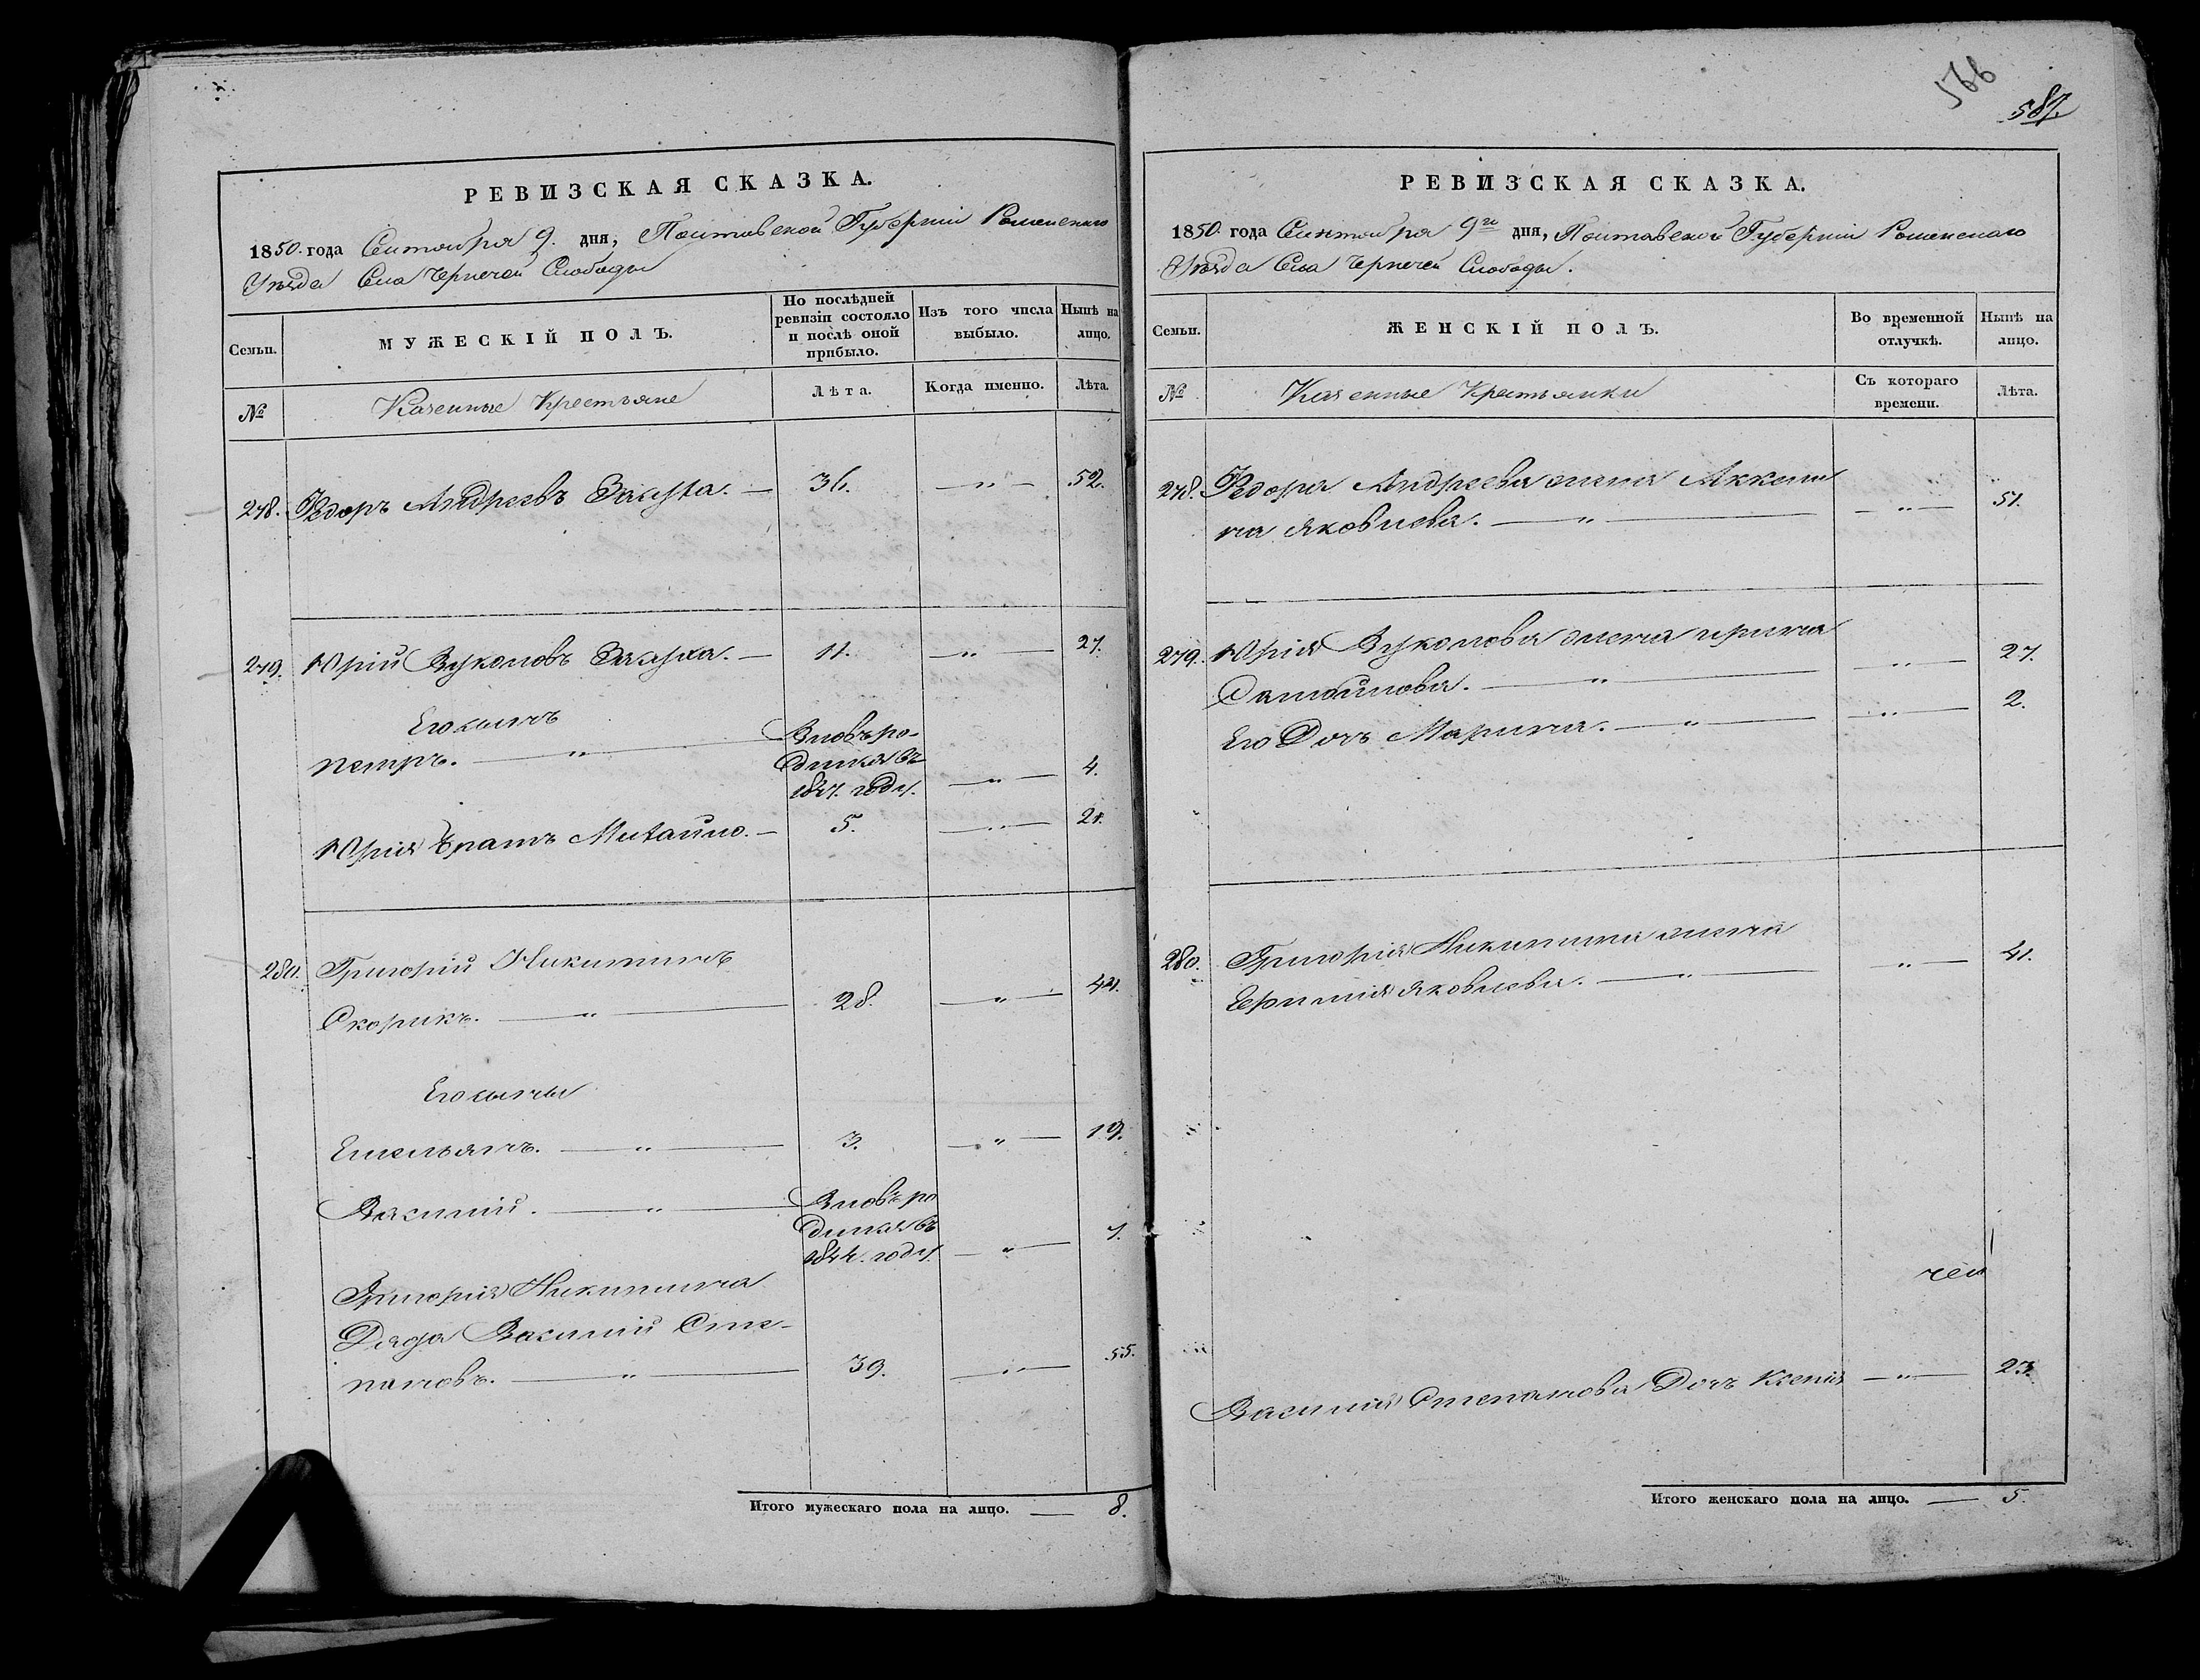 РЕВИЗСКАЯ СКАЗКА.
1850. года Сентября 9. дня, Полтавской Губерніи Роменскаго
Уѣзда Села Чернечей Слободы
Семьи.
МУЖЕСКІЙ ПОЛЪ.
По послѣдней ревизіи состояло и послѣ оной прибыло.
Изъ того числа выбыло.
Нынѣ на лицо.
№
Казенные Крестьяне
Лѣта.
Когда именно.
Лѣта.
278. Федоръ Андреевъ — 36. — " — 52.
279. Юрій Вуколовъ — 11. — " — 27.
Его сынъ
Петръ. — " — Вновь ро-
дился въ
1847. году. — " — 4.
Юрія братъ Михайло. — 5. — " — 21.
280. Григорій Никитинъ
Скорикъ. — " — 28. — " — 44.
Его сыны
Емельянъ. — " — 3. — " — 19.
Василій. — " — Вновь ро
дился въ
1844. году. — " — 7.
Григорія Никитина
Дядя Василій Сте-
пановъ. — " — 39. — " — 55.
Итого мужескаго пола на лицо. — 8.
566
587.
РЕВИЗСКАЯ СКАЗКА.
1850. года Сентября 9го дня, Полтавской Губерніи Роменскаго
Уѣзда Села Чернечей Слободы.
Семьи.
ЖЕНСКІЙ ПОЛЪ.
Во временной отлучкѣ.
Нынѣ на лицо.
№
Казенные Крестьянки
Съ котораго времени.
Лѣта.
278. Федора Андреева жена Аккели
на Яковлева. — " — — " — 51.
279. Юрія Вуколова жена Ирина
Самойлова. — " — — " — 27.
Его Дочь Марина. — " — — " — 2.
280. Григорія Никитина жена
Яковлева. — " — " — 41.
Василія Степанова Дочь Ксенія — " — 23.
Итого женскаго пола на лицо. — 5.